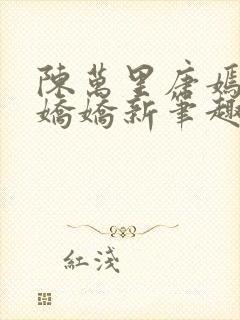 陳萬里唐嫣
嬌嬌新筆趣
紅淺